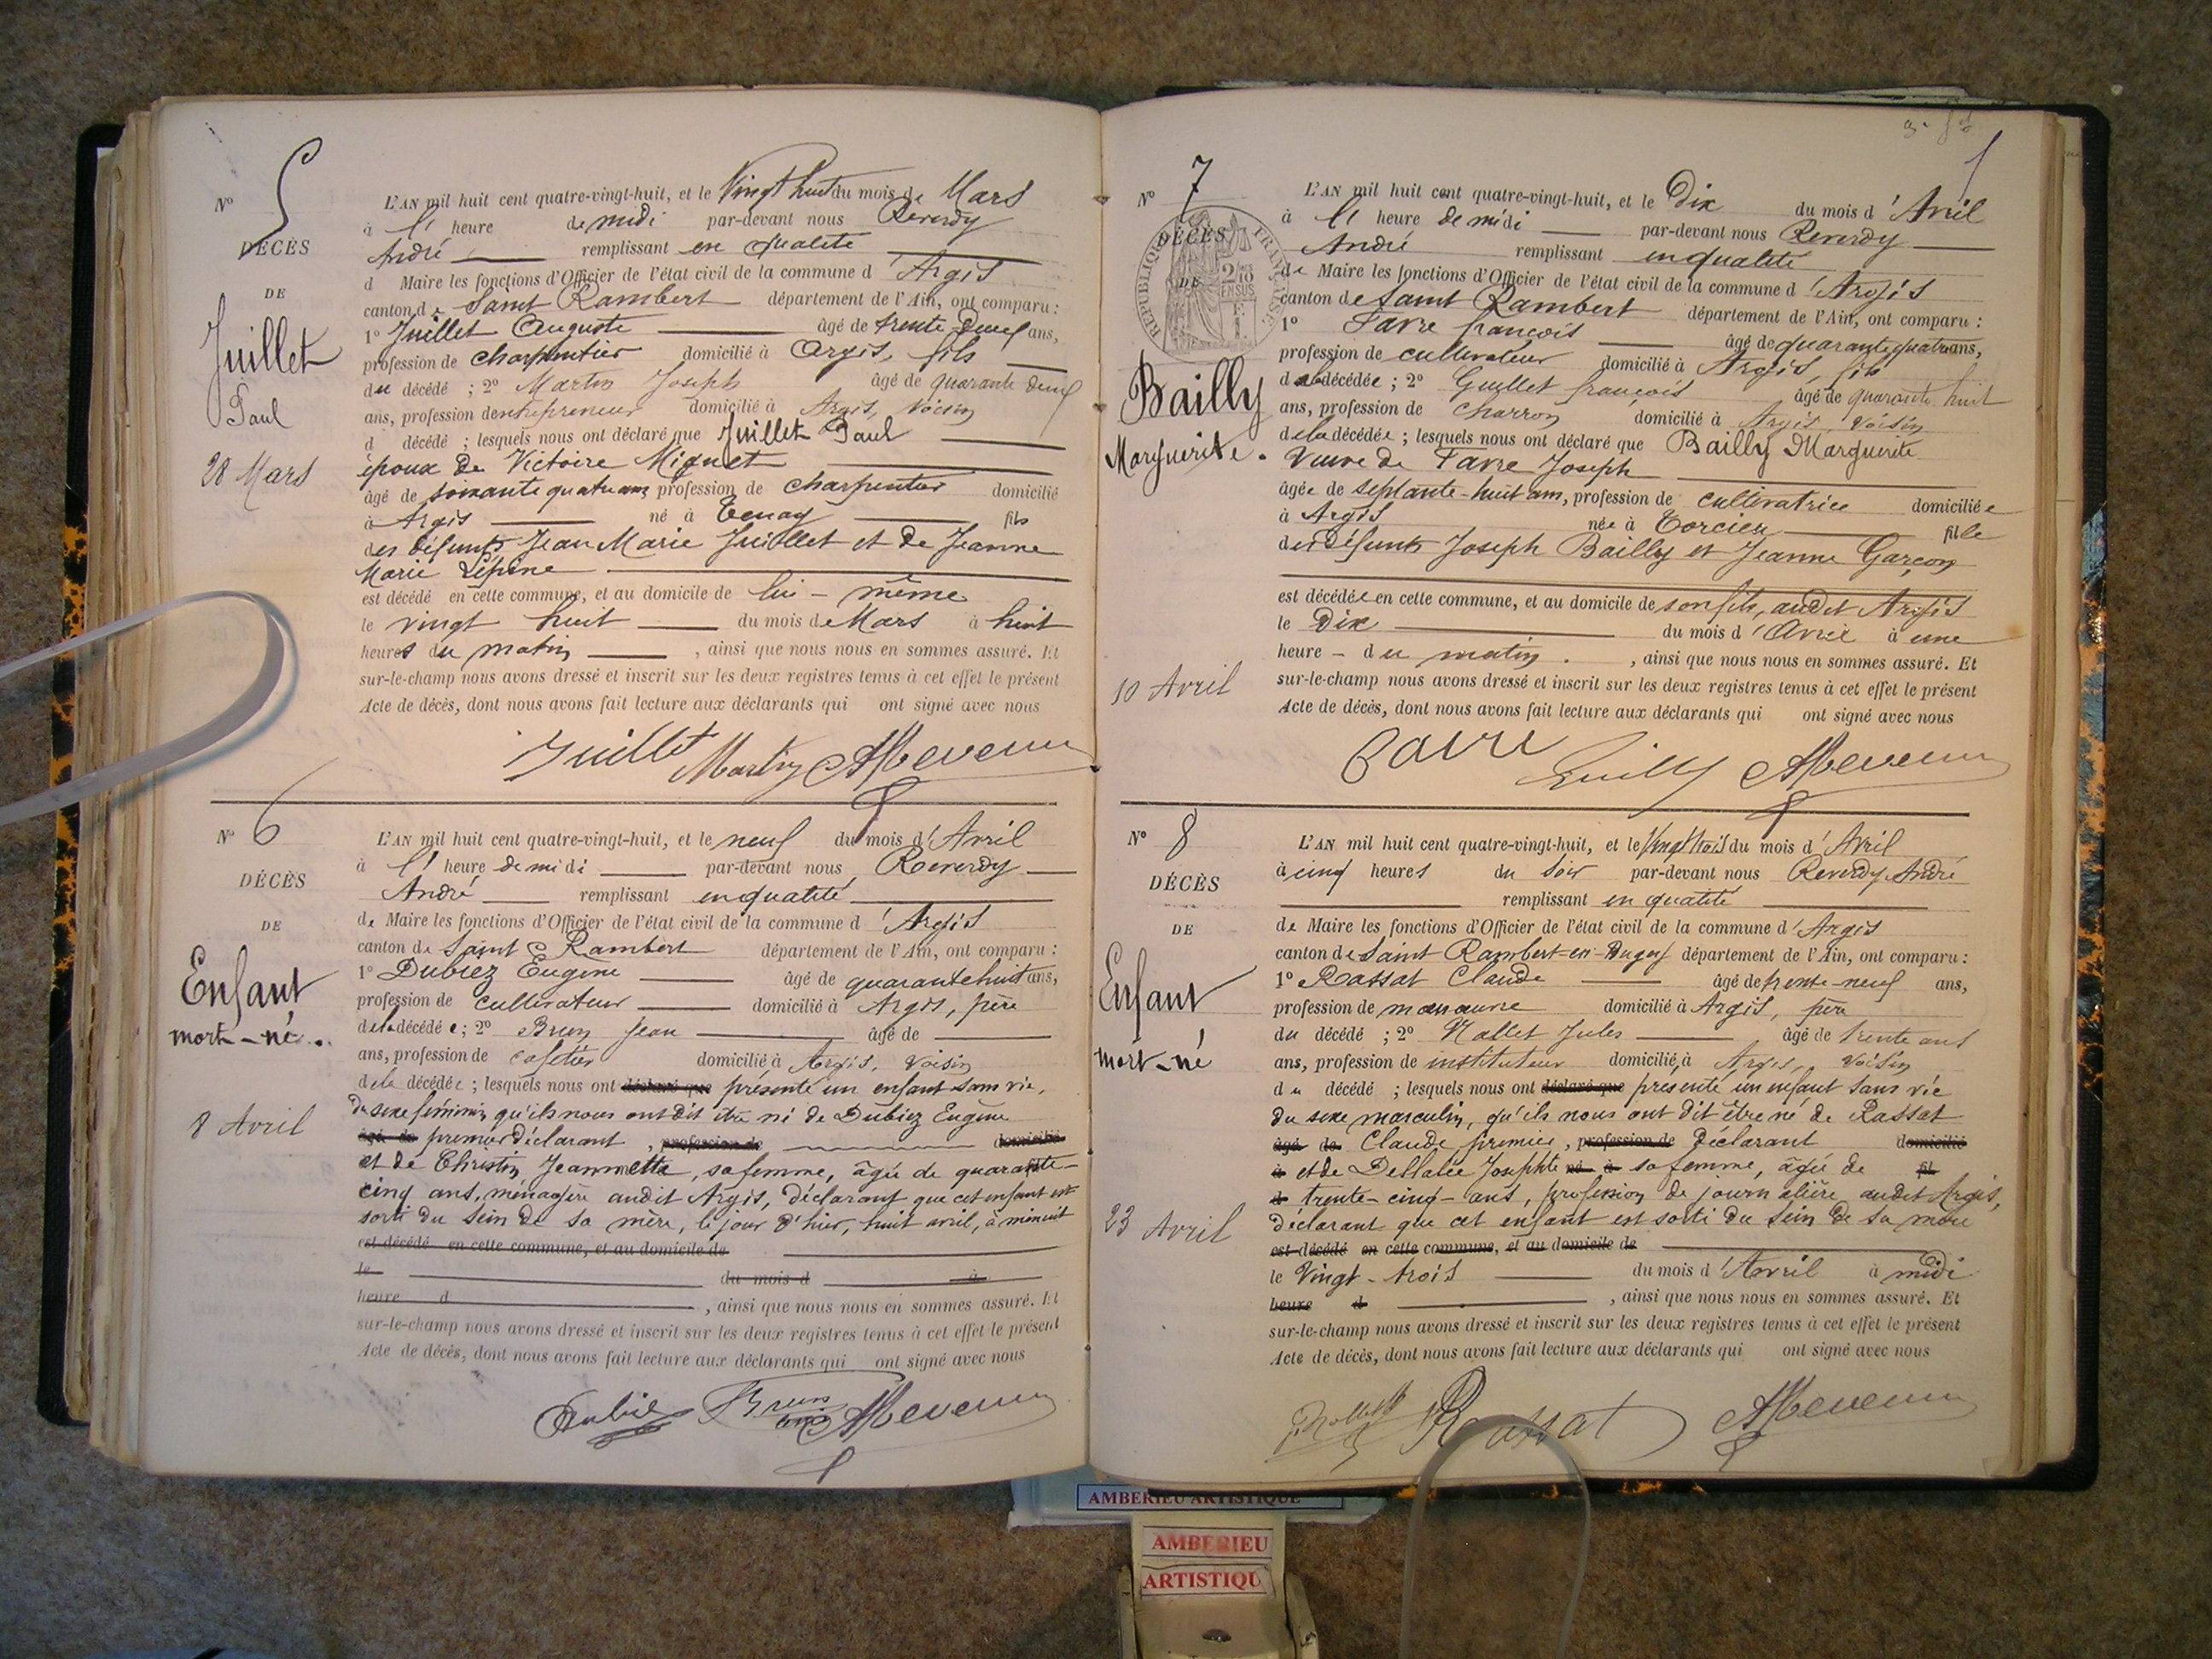 N° 5
DÉCÈS
DE
Juillet
Paul
28 Mars
L'AN mil huit cent quatre-vingt-huit, et le Vingt huit du mois de Mars
à l' heure de midi par-devant nous Reverdy
André remplissant en qualité
d Maire les fonctions d'Officier de l'état civil de la commune d'Argis
canton de Saint Rambert département de l'Ain, ont comparu :
1° Juillet Auguste âgé de trente deux ans,
profession de charpentier domicilié à Argis, fils
du décédé ; 2° Martin Joseph âgé de quarante deux
ans, profession d'entrepreneur domicilié à Argis, voisin
d décédé ; lesquels nous ont déclaré que Juillet Paul
époux de Victoire Miguet
âgé de soixante quatre ans profession de charpentier domicilié
à Argis né à Tenay fils
des défunts Jean Marie Juillet et de Jeanne
Marie Lépine
est décédé en cette commune, et au domicile de lui-même
le vingt huit du mois de Mars à huit
heures du matin, ainsi que nous nous en sommes assuré. Et
sur-le-champ nous avons dressé et inscrit sur les deux registres tenus à cet effet le présent
Acte de décès, dont nous avons fait lecture aux déclarants qui ont signé avec nous
Juillet Martin
N° 6
DÉCÈS
DE
Enfant
mort-né.
8 Avril
L'AN mil huit cent quatre-vingt-huit, et le neuf du mois d'Avril
à l' heure de midi par-devant nous Reverdy
André remplissant en qualité
de Maire les fonctions d'Officier de l'état civil de la commune d'Argis
canton de Saint Rambert département de l'Ain, ont comparu :
1° Dubiez Eugène âgé de quarante huit ans,
profession de cultivateur domicilié à Argis, père
de la décédée ; 2° Brun Jean âgé de
ans, profession de cafetier domicilié à Argis, voisin
de la décédée ; lesquels nous ont déclaré que présenté un enfant sans vie,
du sexe féminin qu'ils nous ont dit être né de Dubiez Eugène
âgé de premier déclarant, profession de domicilié
et de Christin Jeannette, sa femme, âgée de quarante-
cinq ans, ménagère audit Argis, déclarant que cet enfant est
sorti du sein de sa mère, le jour d'hier, huit avril, à minuit
est décédé en cette commune, et au domicile de
le du mois d à
heure d , ainsi que nous nous en sommes assuré. Et
sur-le-champ nous avons dressé et inscrit sur les deux registres tenus à cet effet le présent
Acte de décès, dont nous avons fait lecture aux déclarants qui ont signé avec nous
Dubiez Brun
N° 7
DÉCÈS
DE
RÉPUBLIQUE FRANÇAISE
2/10 EN SUS
Bailly
Marguerite.
10 Avril
L'AN mil huit cent quatre-vingt-huit, et le Dix du mois d'Avril
à l' heure de midi par-devant nous Reverdy
André remplissant en qualité
de Maire les fonctions d'Officier de l'état civil de la commune d'Argis
canton de Saint Rambert département de l'Ain, ont comparu :
1° Favre françois âgé de quarante quatre ans,
profession de cultivateur domicilié à Argis, fils
de la décédée ; 2° Guillet françois âgé de quarante huit
ans, profession de charron domicilié à Argis, voisin
de la décédée ; lesquels nous ont déclaré que Bailly Marguerite
Veuve de Favre Joseph
âgée de septante-huit ans, profession de cultivatrice domiciliée
à Argis née à Torcieu fille
des défunts Joseph Bailly et Jeanne Garçon
est décédée en cette commune, et au domicile de son fils, audit Argis
le Dix du mois d'Avril à une
heure - du matin. , ainsi que nous nous en sommes assuré. Et
sur-le-champ nous avons dressé et inscrit sur les deux registres tenus à cet effet le présent
Acte de décès, dont nous avons fait lecture aux déclarants qui ont signé avec nous
Favre
N° 8
DÉCÈS
DE
Enfant
mort-né
23 Avril
L'AN mil huit cent quatre-vingt-huit, et le Vingt trois du mois d'Avril
à cinq heures du soir par-devant nous Reverdy André
remplissant en qualité
de Maire les fonctions d'Officier de l'état civil de la commune d'Argis
canton de Saint Rambert-en-Bugey département de l'Ain, ont comparu :
1° Rassat Claude âgé de trente-neuf ans,
profession de manœuvre domicilié à Argis, père
du décédé ; 2° Jules âgé de trente ans
ans, profession de instituteur domicilié à Argis, voisin
du décédé ; lesquels nous ont déclaré que présenté un enfant sans vie
du sexe masculin, qu'ils nous ont dit être né de Rassat
âgé de Claude, premier, profession de Déclarant domicilié
à et de Josephte né à sa femme, âgée de fil
d trente-cinq-ans, profession de journalière audit Argis,
déclarant que cet enfant est sorti du sein de sa mère
est décédé en cette commune, et au domicile de
le Vingt-trois du mois d'Avril à midi
heure d , ainsi que nous nous en sommes assuré. Et
sur-le-champ nous avons dressé et inscrit sur les deux registres tenus à cet effet le présent
Acte de décès, dont nous avons fait lecture aux déclarants qui ont signé avec nous
Rassat
AMBERIEU ARTISTIQUE
AMBERIEU
ARTISTIQU